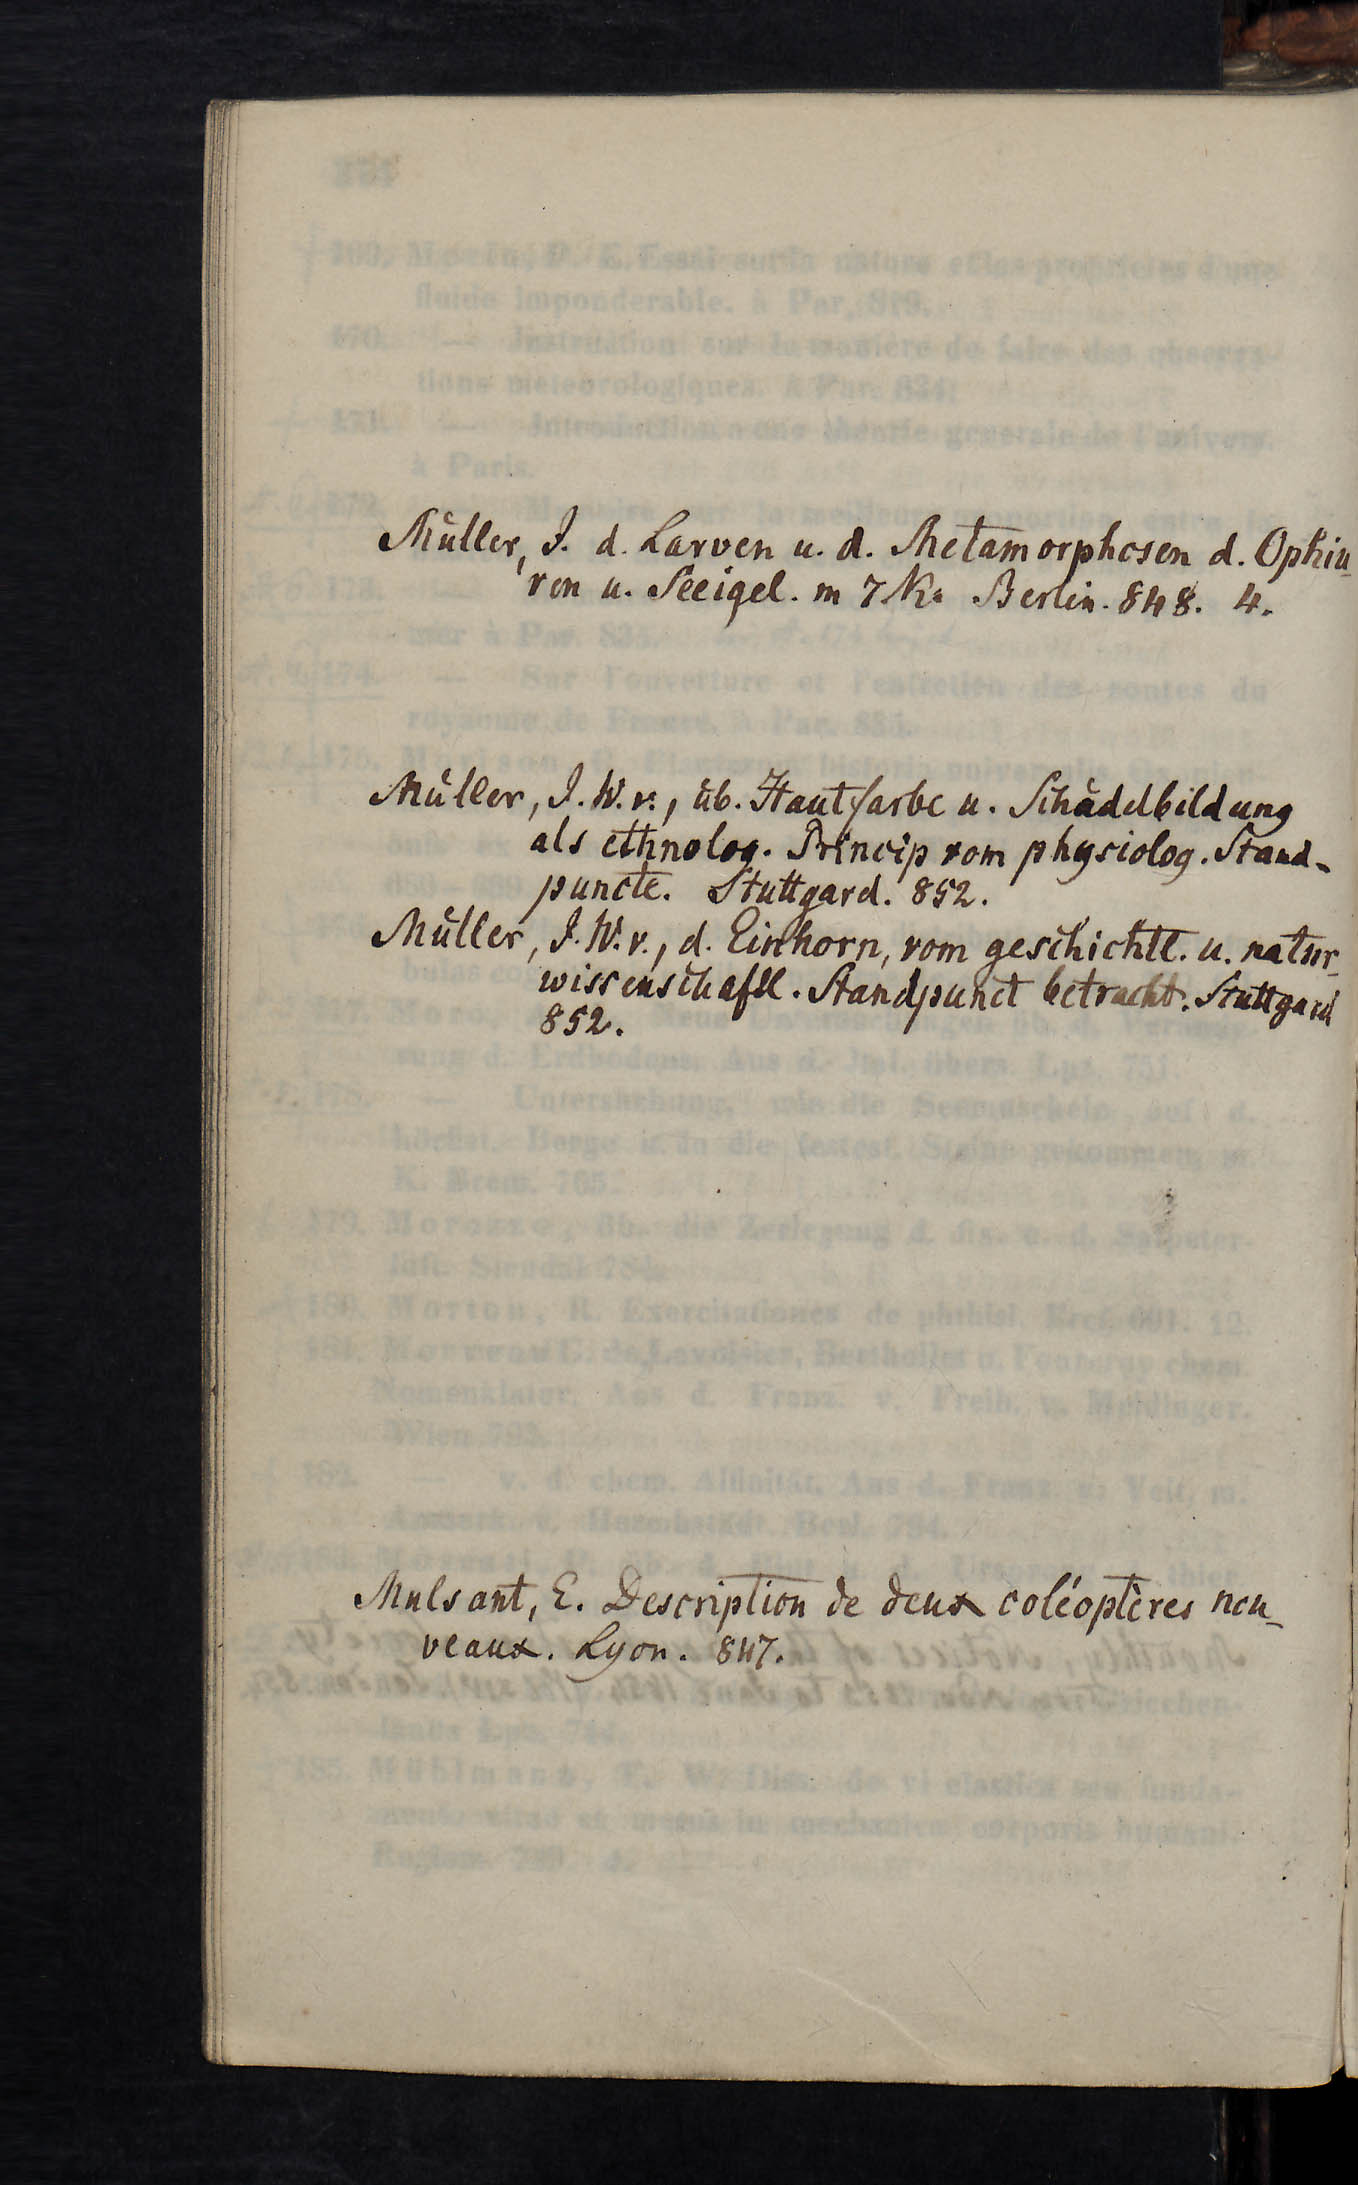 Müller, J. d. Larven u. d. Metamorphosen d. Ophiu-
ren u. Seeigel. m 7 K. Berlin. 848. 4.
Müller, J. W. v., üb. Hautfarbe u. Schädelbildung
als ethnolog. Princip vom physiolog. Stand-
puncte. Stuttgard. 852.
Müller, J. W. v., d. Einhorn, vom geschichtl. u. natur-
wissenschaftl. Standpunct betracht. Stuttgard
852.
Mulsant, E. Description de deux coléoptères nou-
veaux. Lyon. 847.